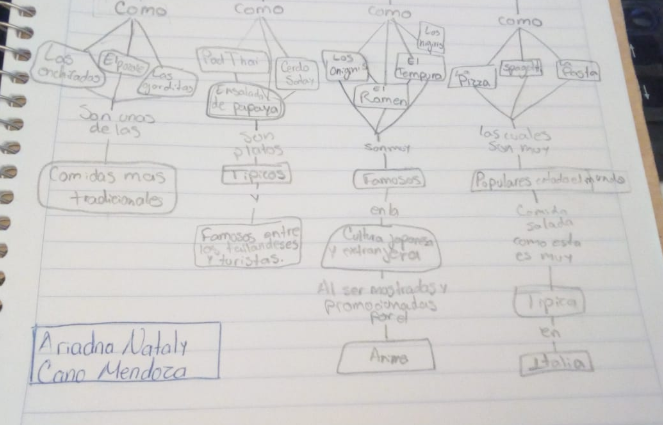 Como
Las
enchiladas
El pozole
Las
gorditas
Son unas
de las
Comidas mas
tradicionales
Como
Pad Thai
Cerdo
Satay
Ensalada
de papaya
Son
platos
Típicos
y
Famosos entre
los tailandeses
y turistas.
Como
Los
Los
El
tempura
El
Ramen
son muy
Famosos
en la
Cultura japonesa
y extranjera
Al ser mostrados y
promocionados
por el
Anime
como
La
Pizza
La
Pasta
las cuales
son muy
Populares en todo el mundo
Comida
salada
como esta
es muy
Típica
en
Italia
Ariadna Nataly
Cano Mendoza